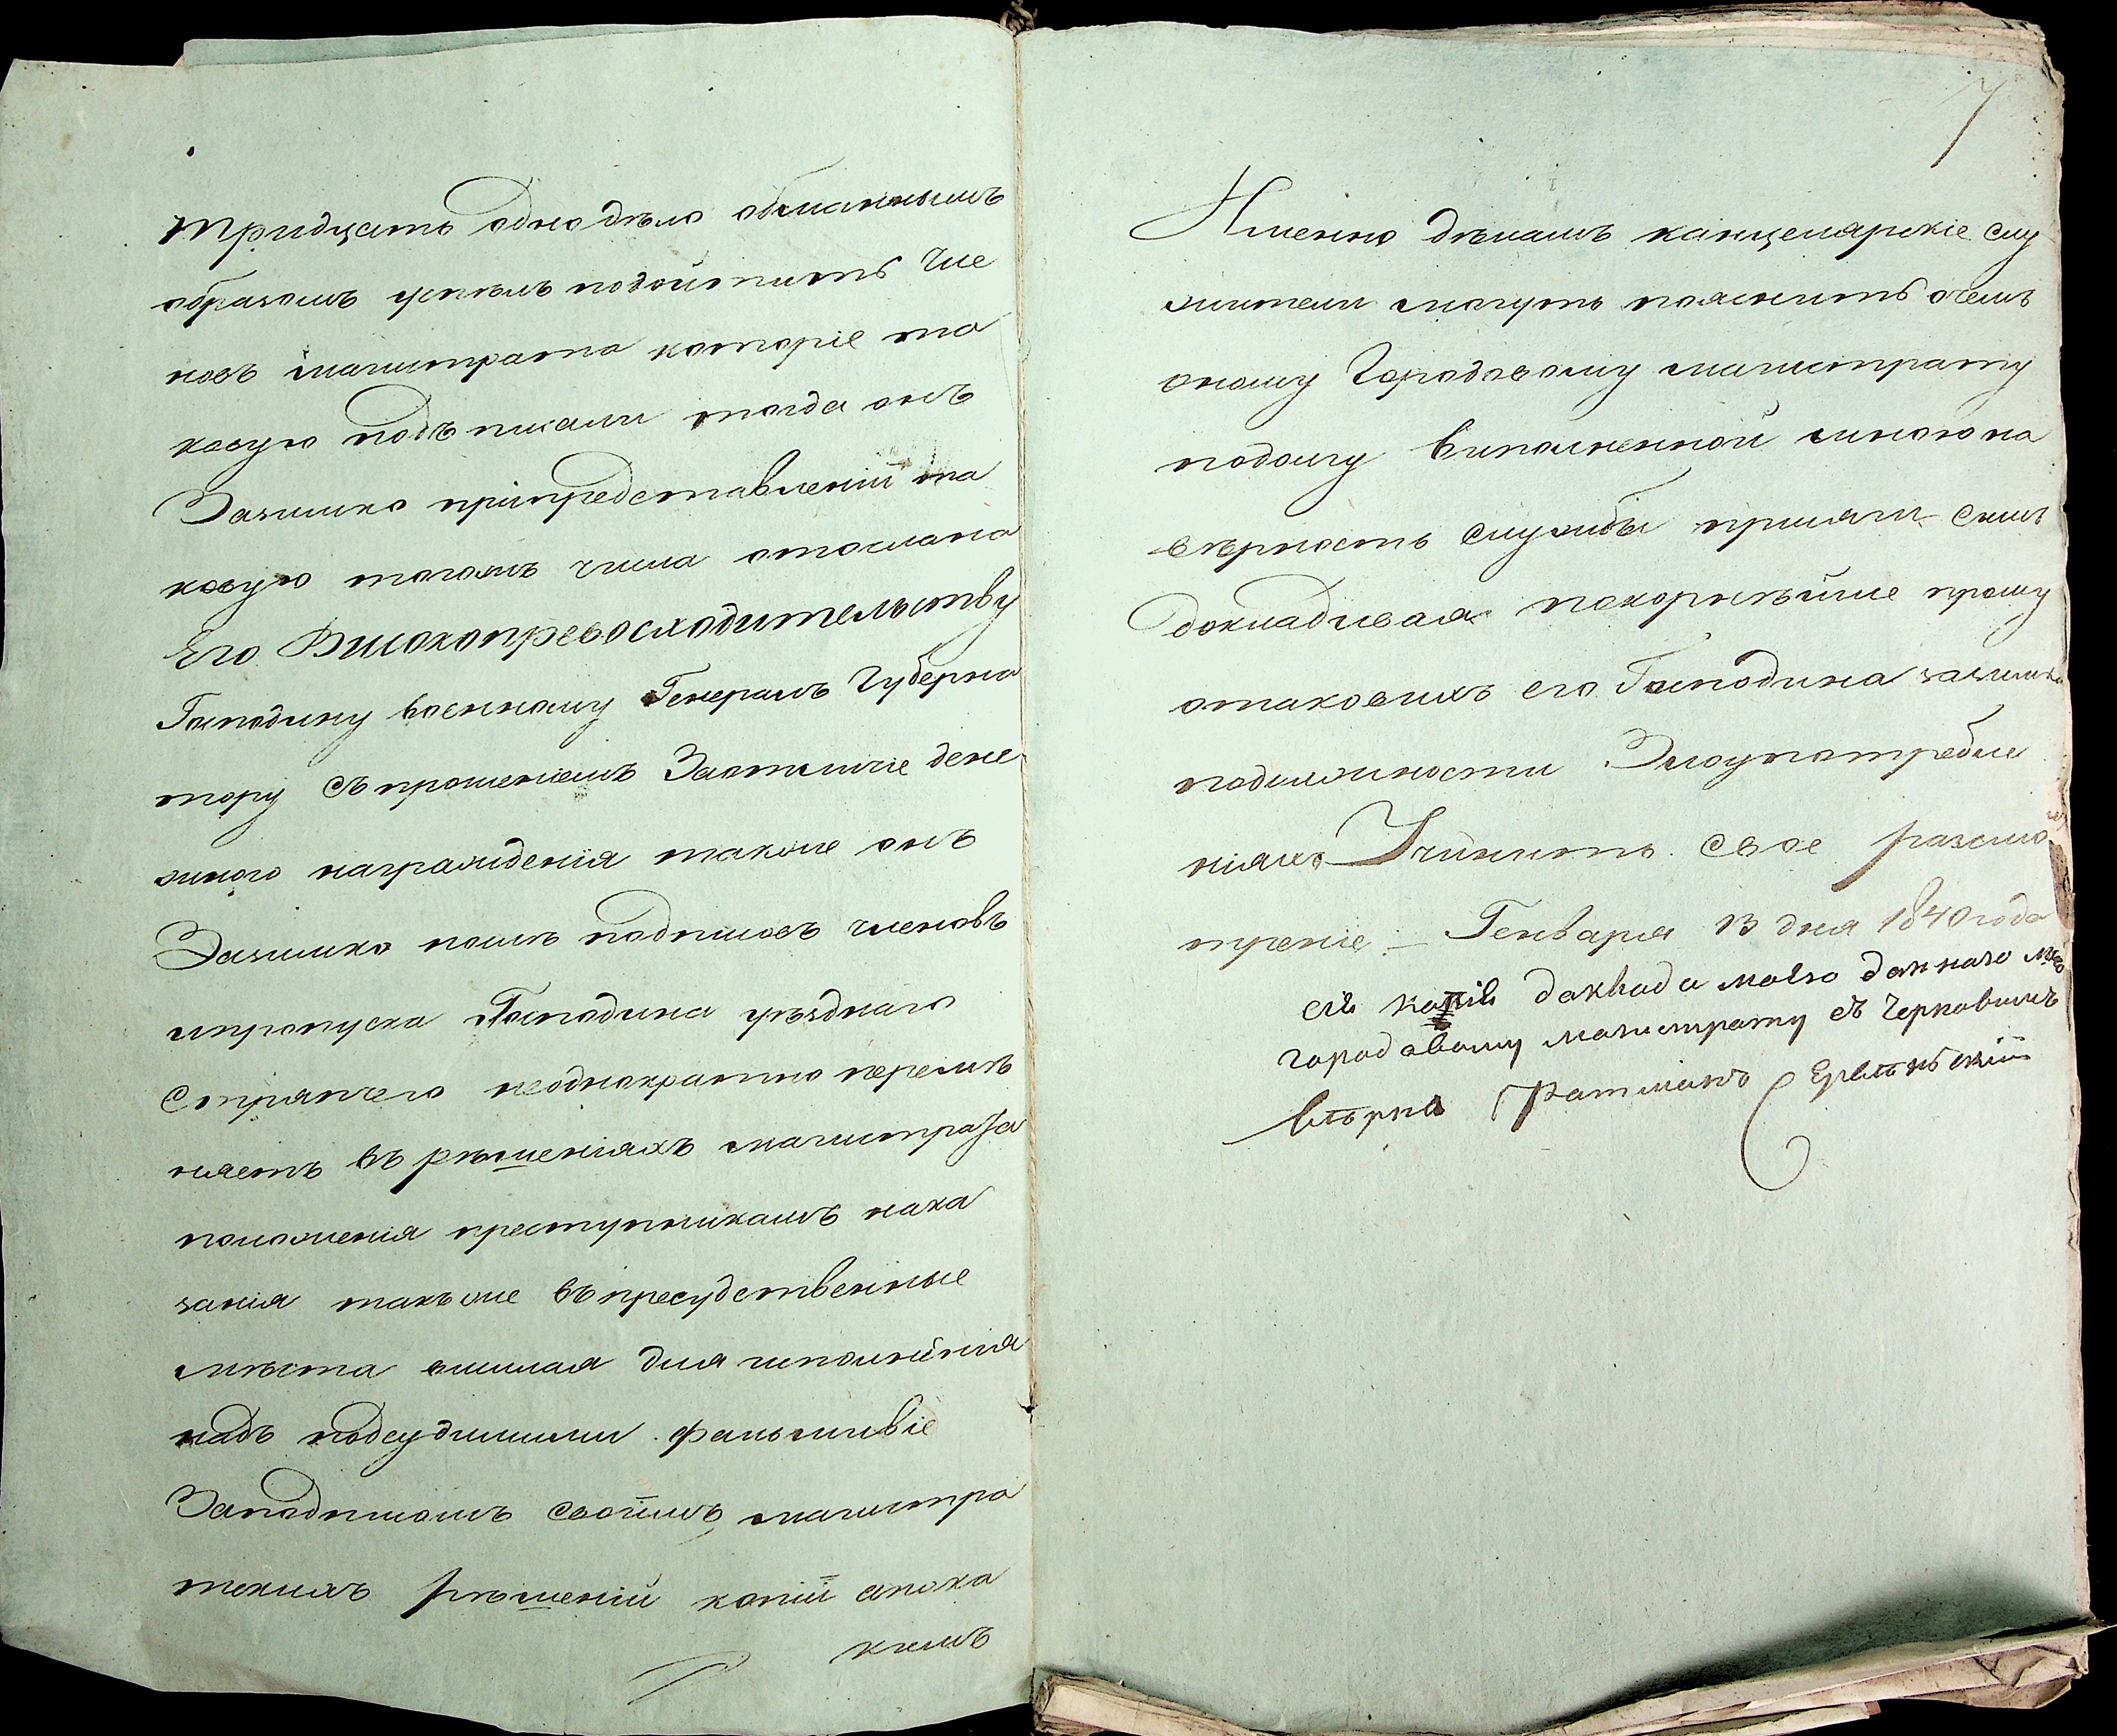 тридцать одно дѣло обманнымъ
образомъ успѣлъ подойтить Чле
новъ магистрата которіе та
ковую подъписали тогда онъ
Зазимко пріпредставленіи та
ковую тогожъ числа отослана
Его Високопревосходительству
Господину военному Генералъ Губерна
тору Съ прошеніемъ Заотличіе дене
жного награжденія также онъ
Зазимко послѣ подписовъ членовъ
ипропуска Господина уѣзднаго
Стряпчего неоднократно перемѣ
няетъ въ рѣшеніяхъ магистрата
положенія преступникамъ нака
занія такъже въ пресудственные
мѣста данія для исполнінія
надъ подсудимими фальшивіе
Заподписомъ своимъ магистра
тскихъ рѣшеній копіи апока
кимъ
7
Именно дѣламъ канцелярскіе слу
жители могутъ пояснить очемъ
оному Городовому магистрату
подолгу виполненной мною на
вѣрность службы присяги симъ
докладивая покорнѣйше прошу
отаковихъ его Господина зазимка
подолжности Злоупотребле
ніяхъ Учинить свое разсмо
треніе – Генваря 13 дня 1840 года
сiе копiе доклада моего даннаго мною
городовому магистрату съ Черновимъ
вѣрна Ратманъ